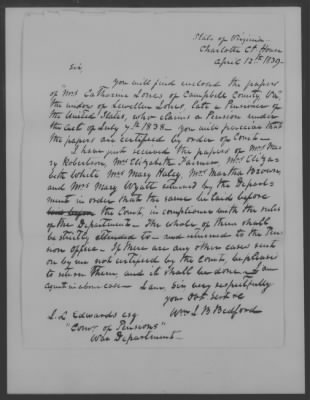 State of Virginia
Charlotte Ct House
April 12th 1839
Sir
you will find enclosed the papers
of Mrs Catharine Jones of Campbell County Va
the widow of Lewellen Jones, late a Pensioner of
the United States, who claims a Pension under
the Act of July 7th 1838 – you will perceive that
the papers are certified by order of Court –
I have just received the papers of Mrs Ma-
ry Robertson, Mrs Elizabeth Farmer, Mrs Eliza-
beth White Mrs Mary Haley, Mrs Martha Brown,
and Mrs Mary Wyatt returned by the Depart-
ment in order that the same be laid before
the Court, in compliance with the rules
of the Department – The whole of them shall
be strictly attended to – and returned to the Pen-
sion Office – If there are any other cases sent
on by me not certified by the Court, be please
to return them, and it shall be done – I am
agent in above cases – I am, Sir, very respectfully
your Obt Servt
Wm L B Bedford
J. L Edwards esq
"Comr of Pensions"
War Department –